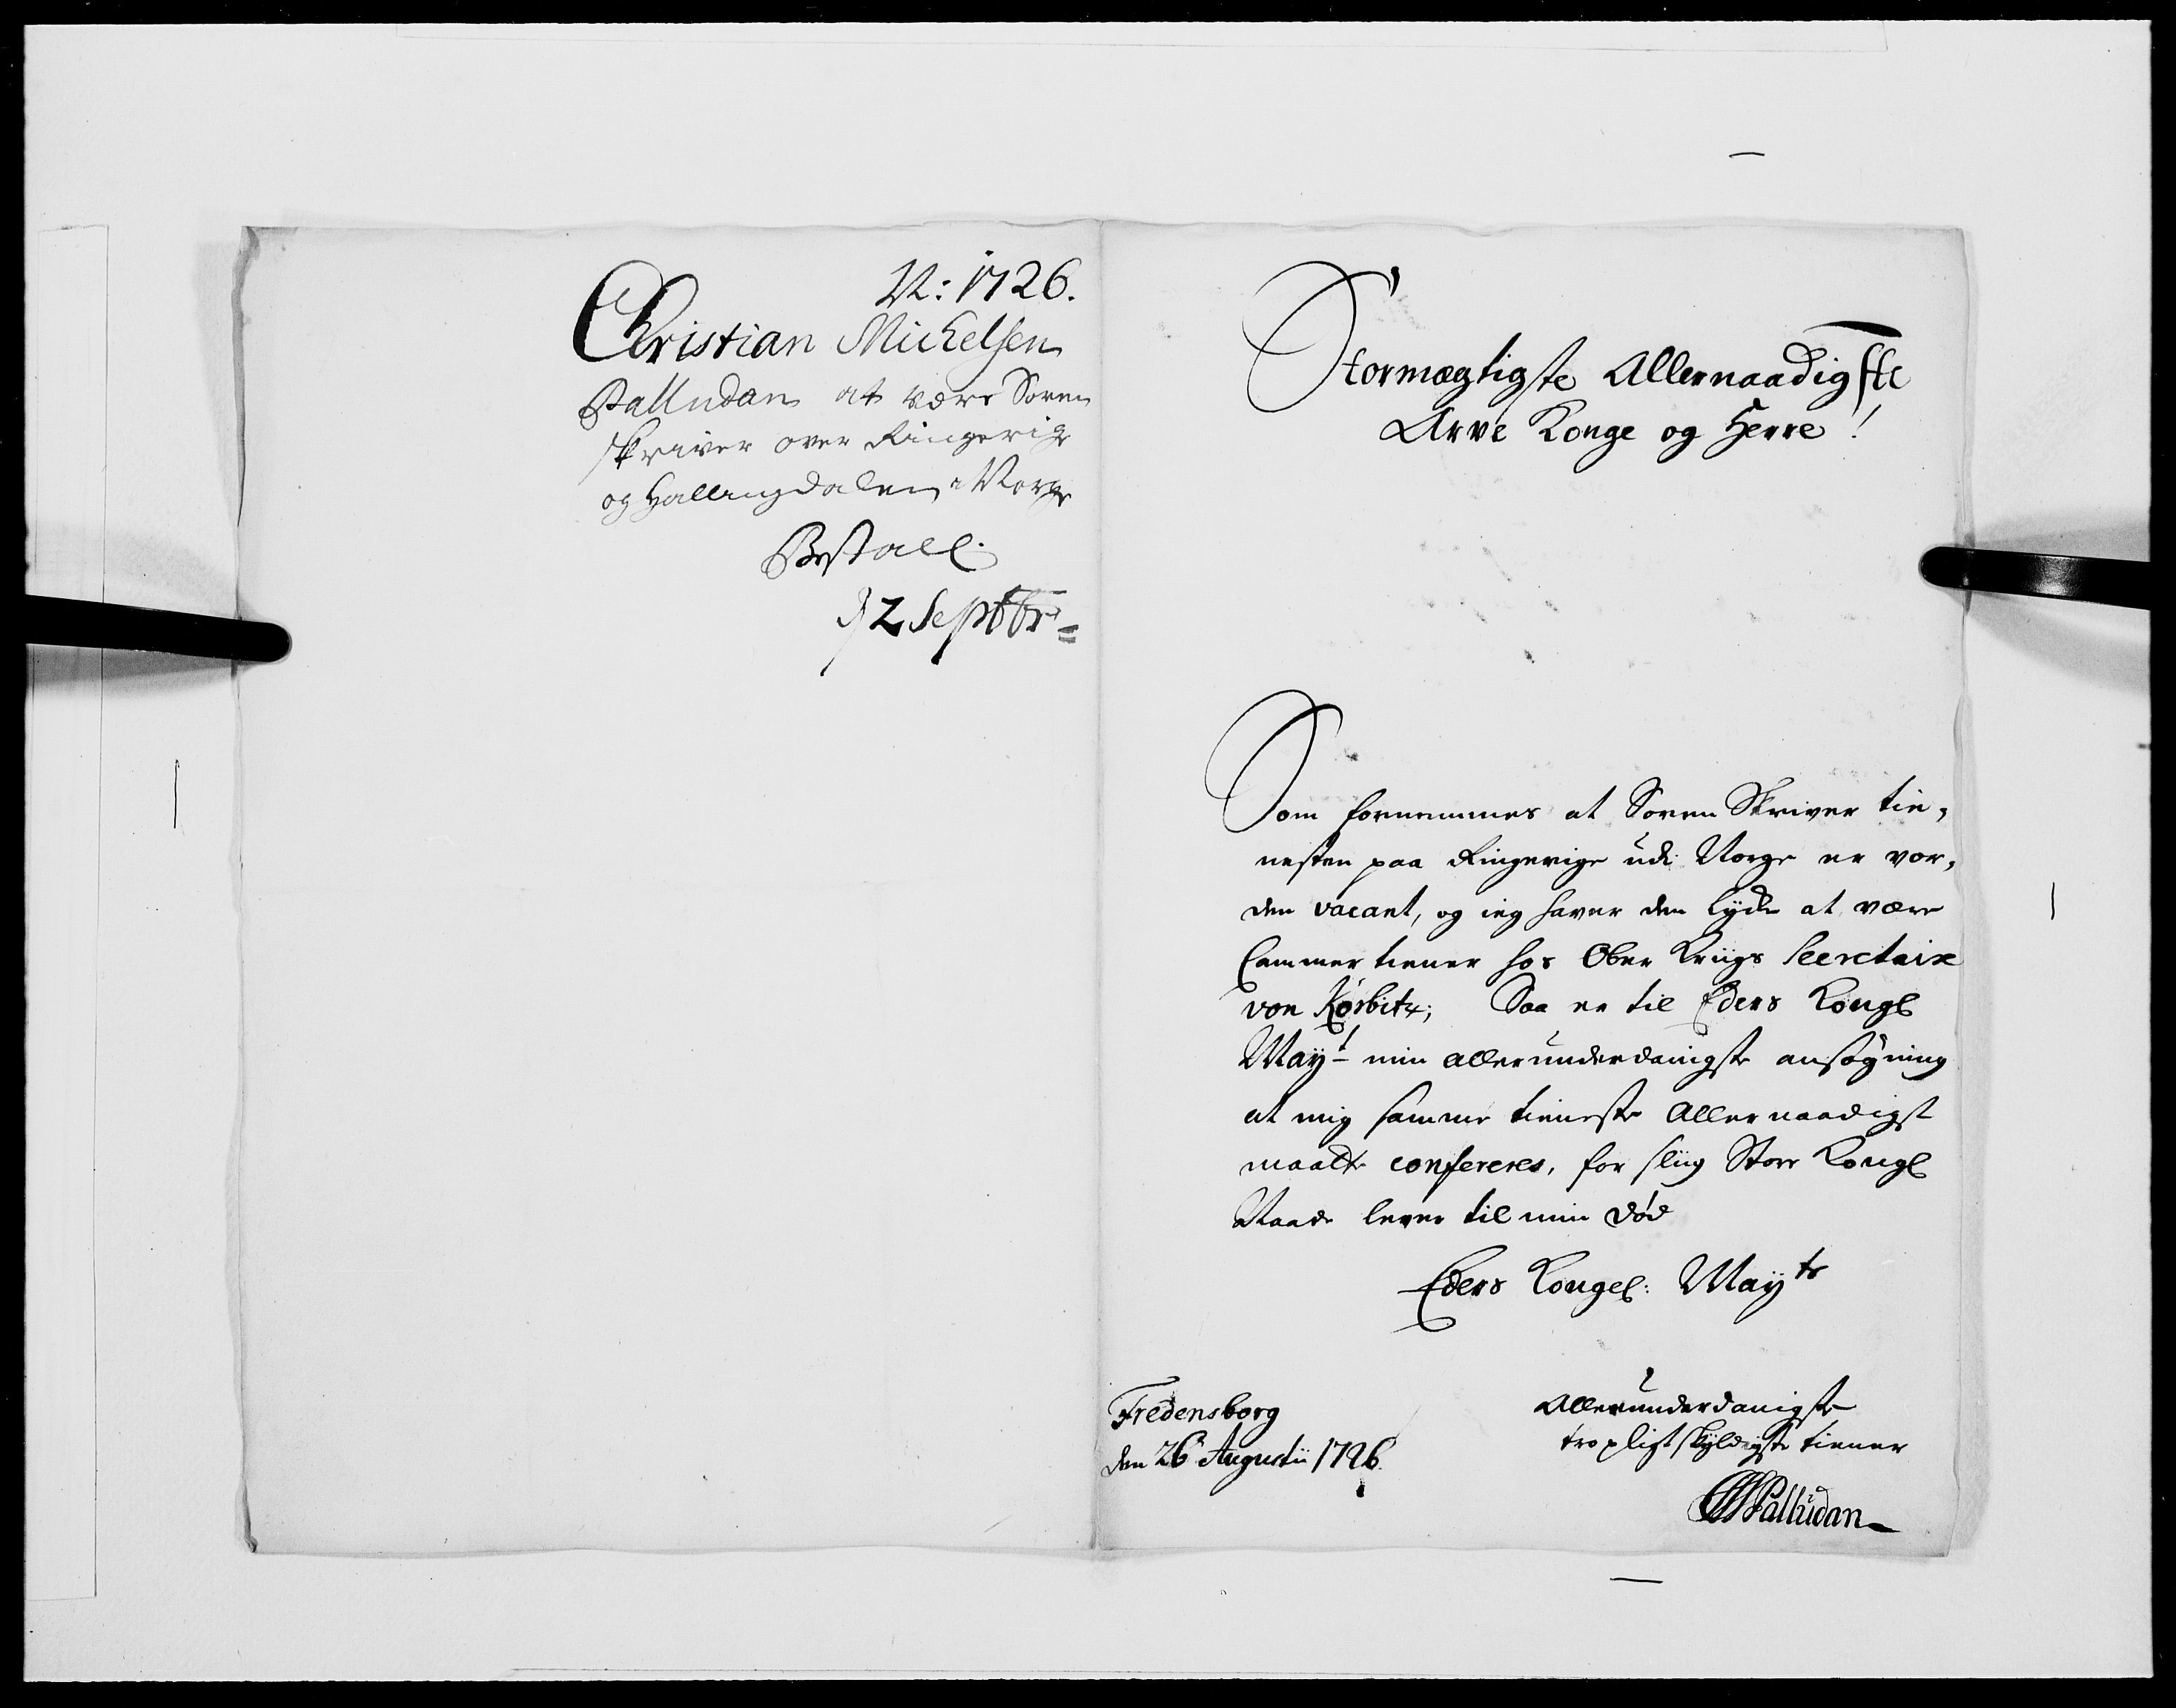 N: 1726.
Christian Michelsen
Palludan at være Soren
skriver over Ringerige
og Hallingdalen i Norge
Bestall.
d 2 Septbr=
Stormægtigste Allernaadigste
Arve Konge og Herre!
Som fornemmes at Soren Skriver tie,
nesten paa Ringerige udi Norge er vor,
den vacant, og ieg haver den lyche at være
Cammertiener hos Ober Kriigs Secretaire
von Körbitz; Saa er til Eders Kongl
Mayt min allerunderdanigste ansögning
at mig samme tieneste Allernaadigst
maatte confereres, for sliig Stor Kongl
Naade lever til min död
Eders Kongel: Mayts
Allerunderdanigste
tropligtskyldigste tiener
CMPalludan
Fredensborg
den 26 Augustii 1726.